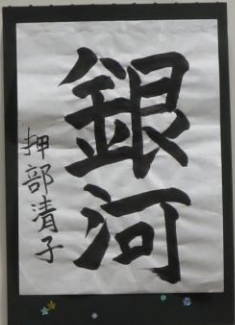 銀河
押部清子